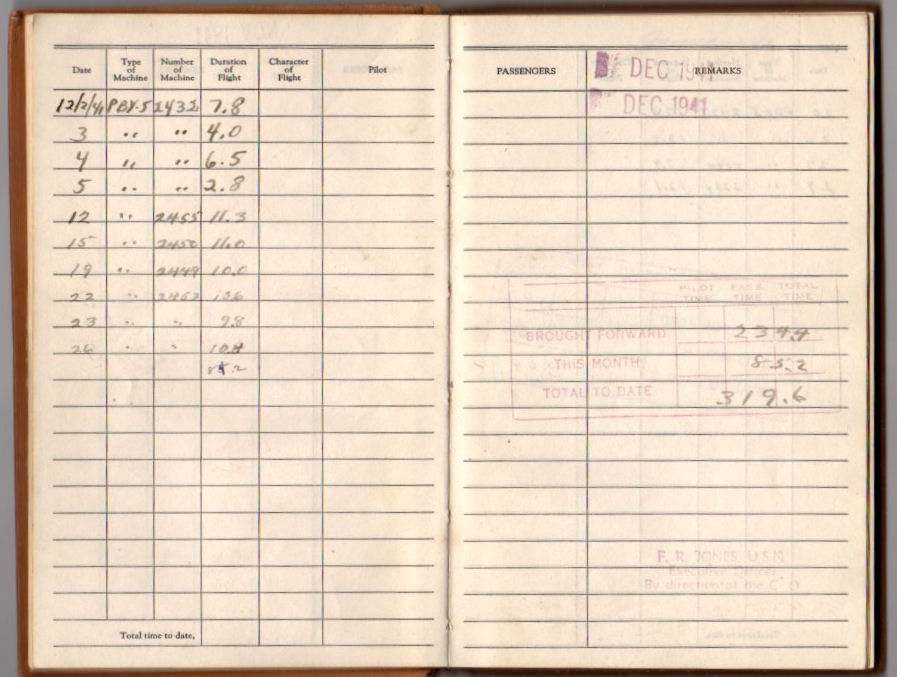 Date Type of Machine Number of Machine Duration of Flight Character of Flight Pilot
12/2/41 PBY-5 2432 7.8
3 " " 4.0
4 " " 6.5
5 " " 2.8
12 " 2455 11.3
15 " 2450 11.0
19 " 2449 10.0
22 " 10.6
23 " " 9.8
26 " " 10.4
85.2
Total time to date,
PASSENGERS REMARKS
DEC 1941
DEC 1941
PILOT TIME PASS. TIME TOTAL TIME
BROUGHT FORWARD 234.4
THIS MONTH 85.2
TOTAL TO DATE 319.6
F. R. JONES U.S.N.
Executive Officer
By direction of the C.O.